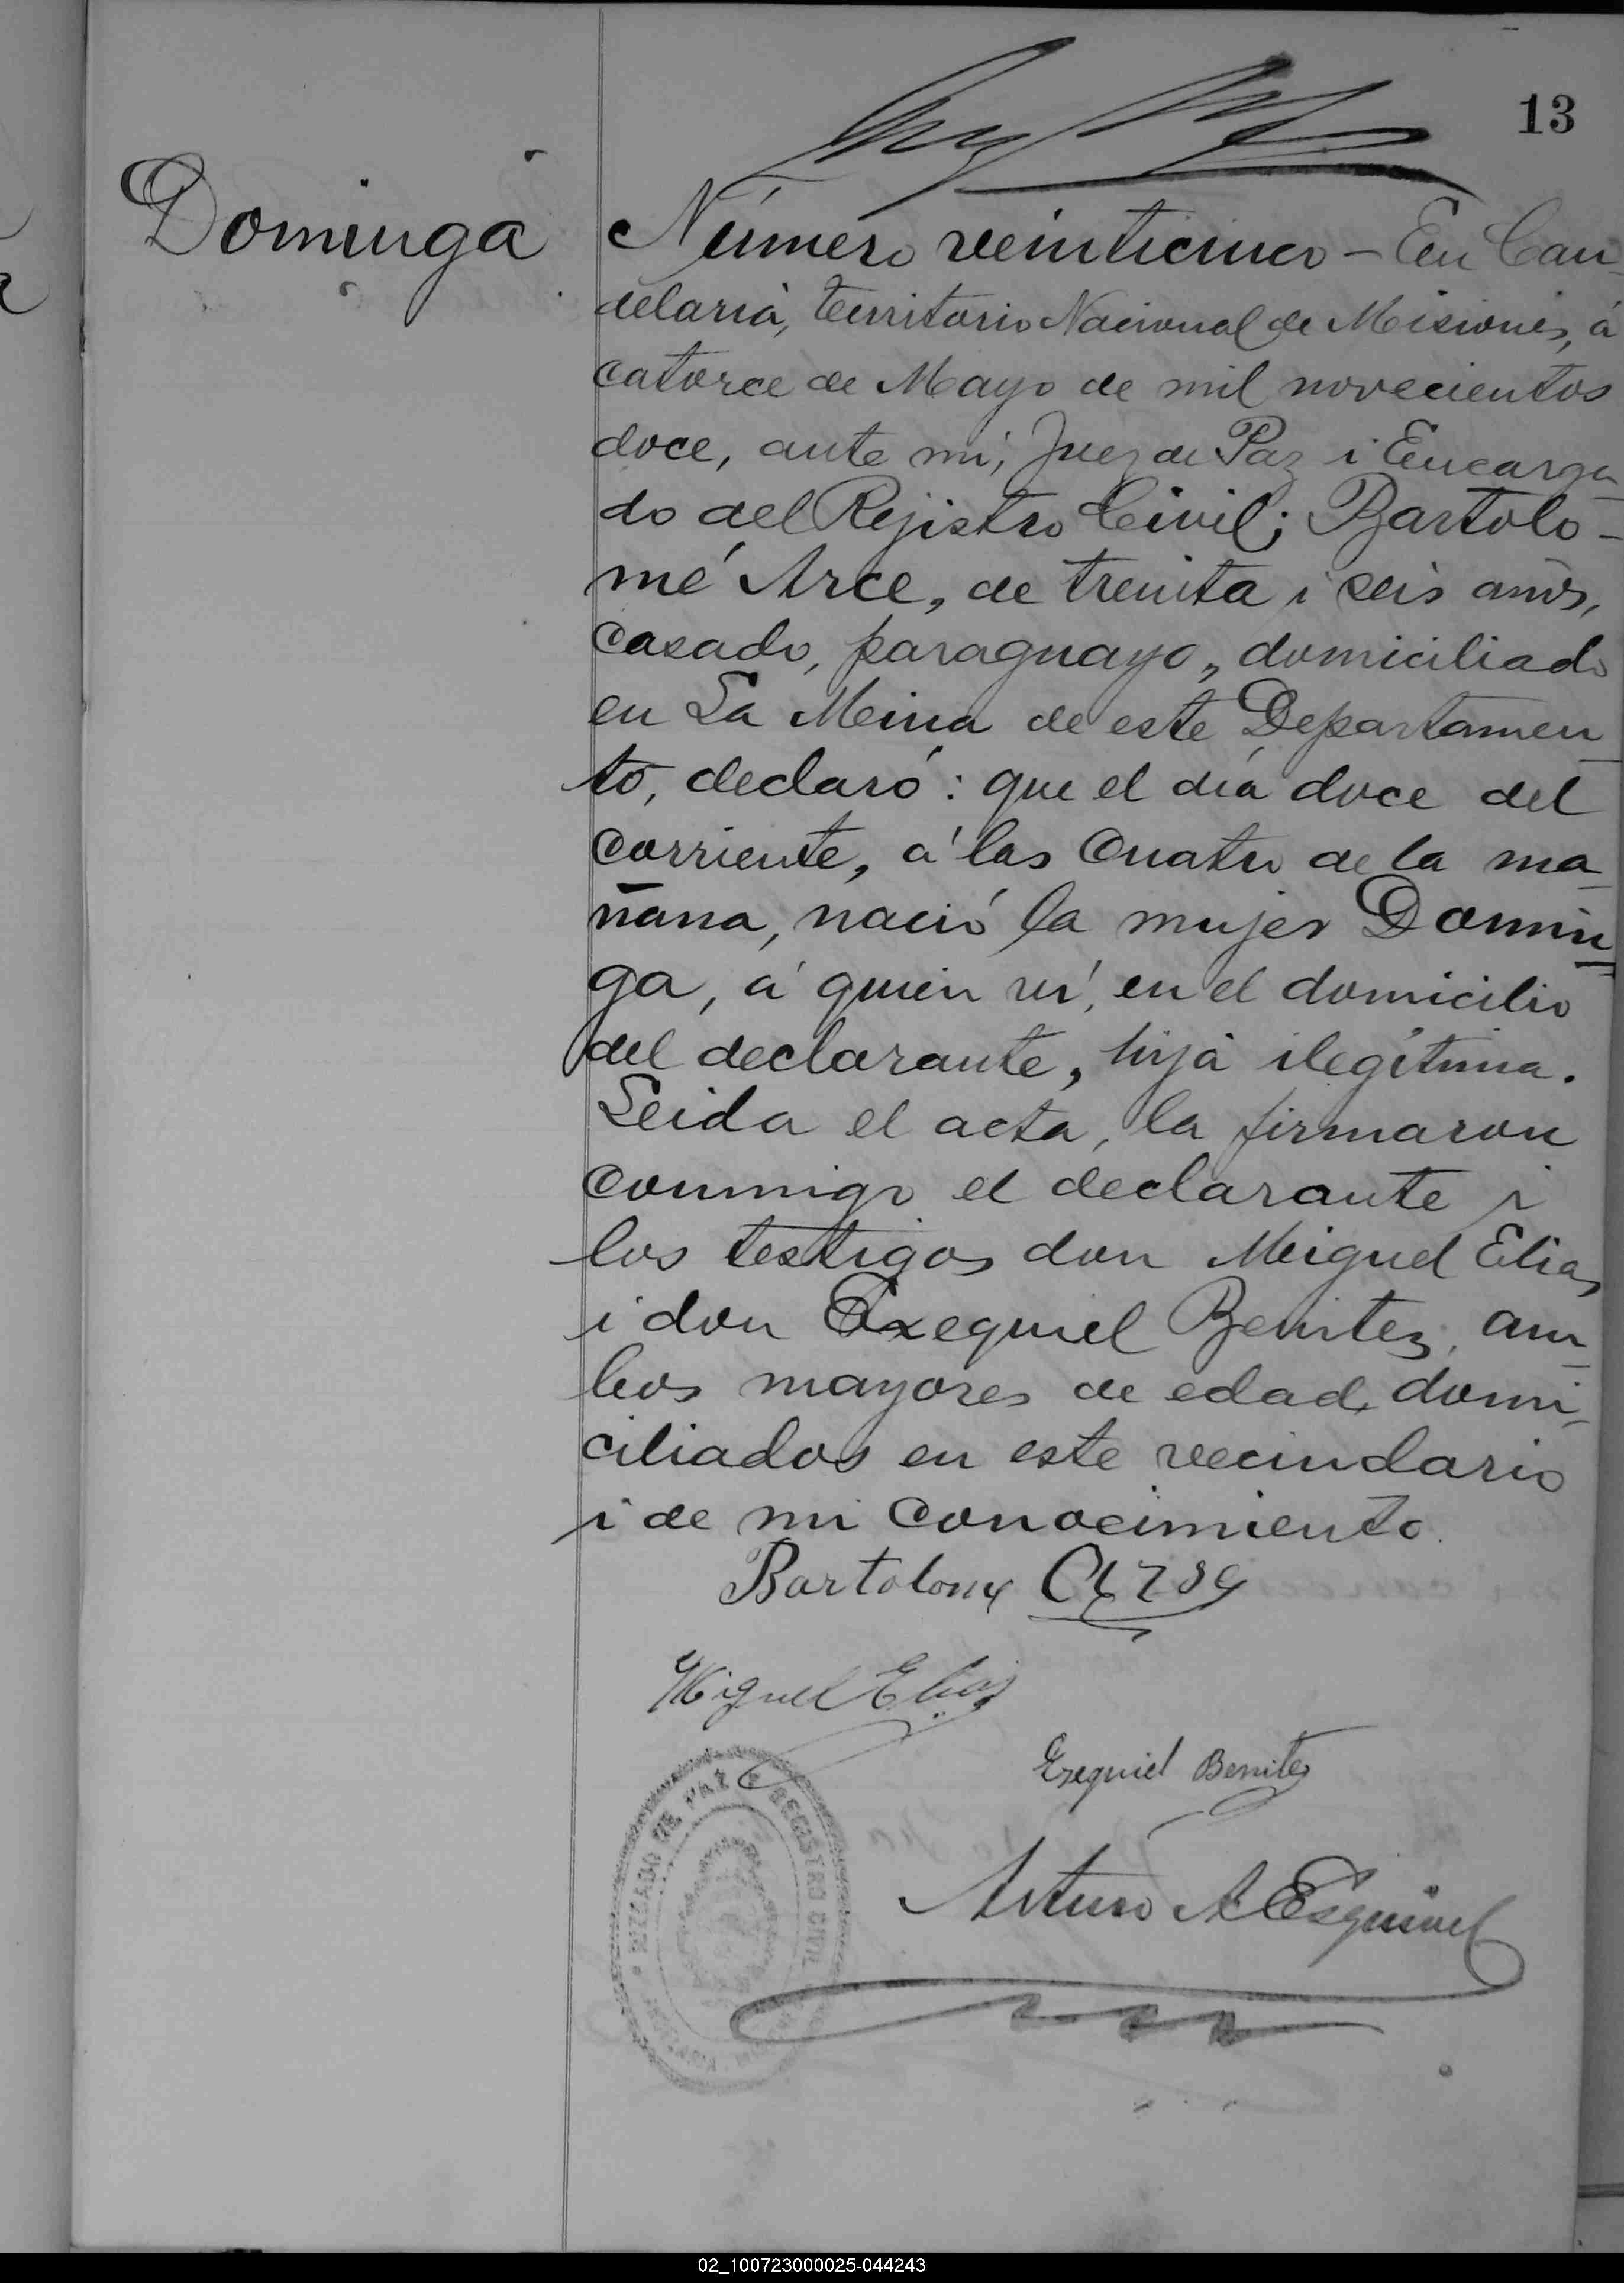 13
Dominga
Número veinticinco - En Can
delaria, territorio Nacional de Misiones, á
catorce de Mayo de mil novecientos
doce, ante mi, Juez de Paz i Encarga
do del Rejistro Civil; Bartolo-
mé Arce, de treinta i seis años,
casado, paraguayo, domiciliado
en La Meina de este Departamen
to, declaró: que el día doce del
corriente, á las cuatro de la ma
ñana, nació la mujer Domin
ga, á quien ví, en el domicilio
del declarante, hija ilegítima.
Leida el acta, la firmaron
conmigo el declarante i
los testigos don Miguel Elias
i don Exequiel Benitez, am
bos mayores de edad, domi
ciliados en este vecindario
i de mi conocimiento.
Bartolome Arse
Miguel Elias
Ezequiel Benitez
Arturo A Esquivel
JUZGADO DE PAZ REGISTRO CIVIL
02_100723000025-044243